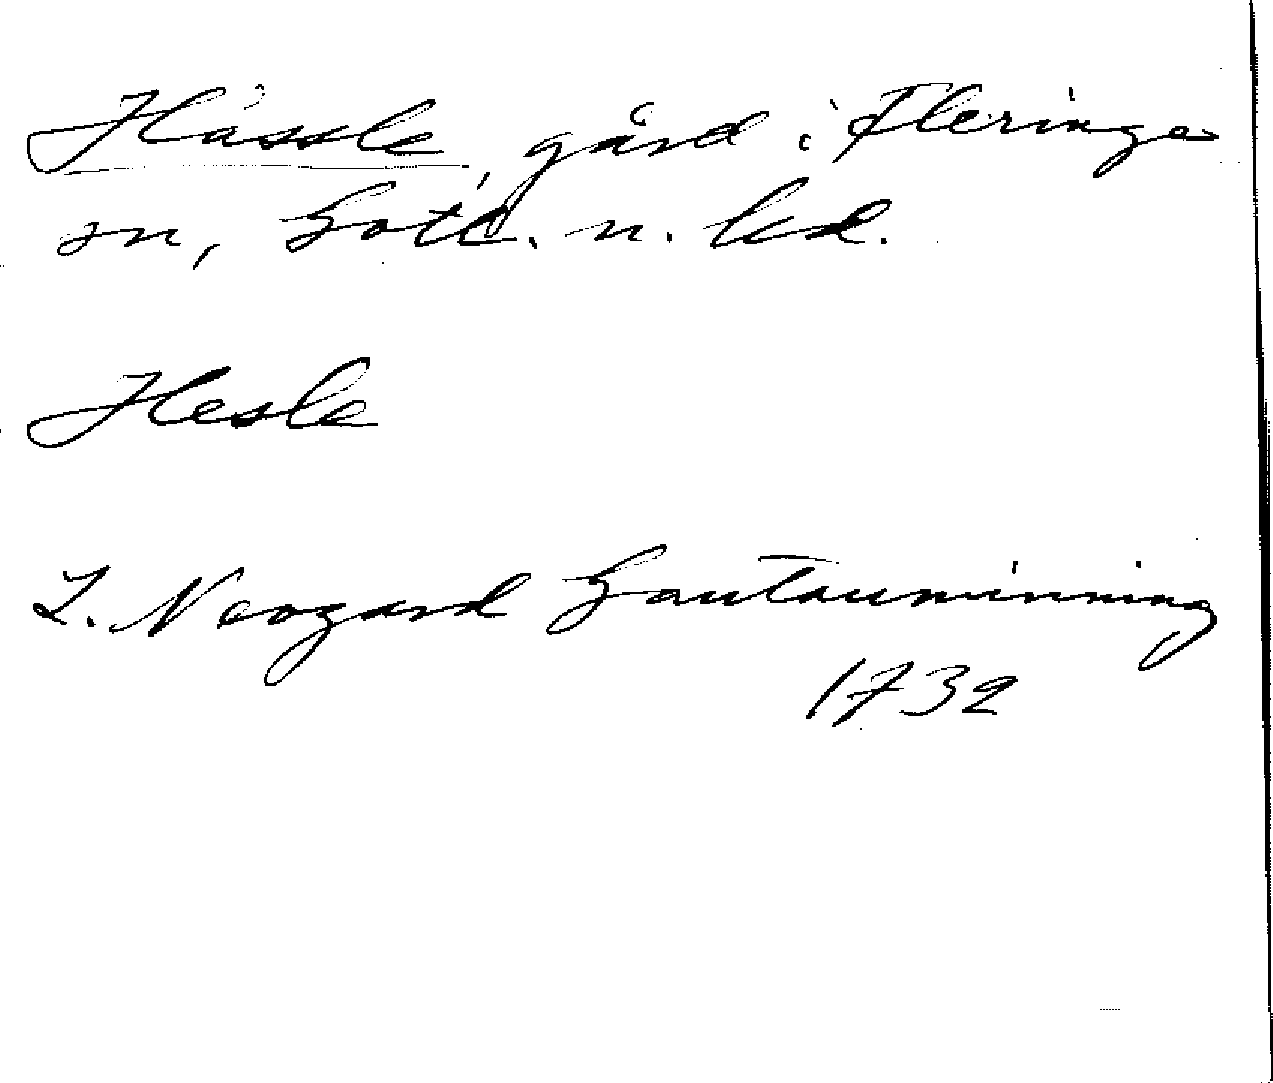 Hässle, gård i Fleringe
sn, Gotl. n. hd.
Hesle
I. Neogard Gautauminning
1732